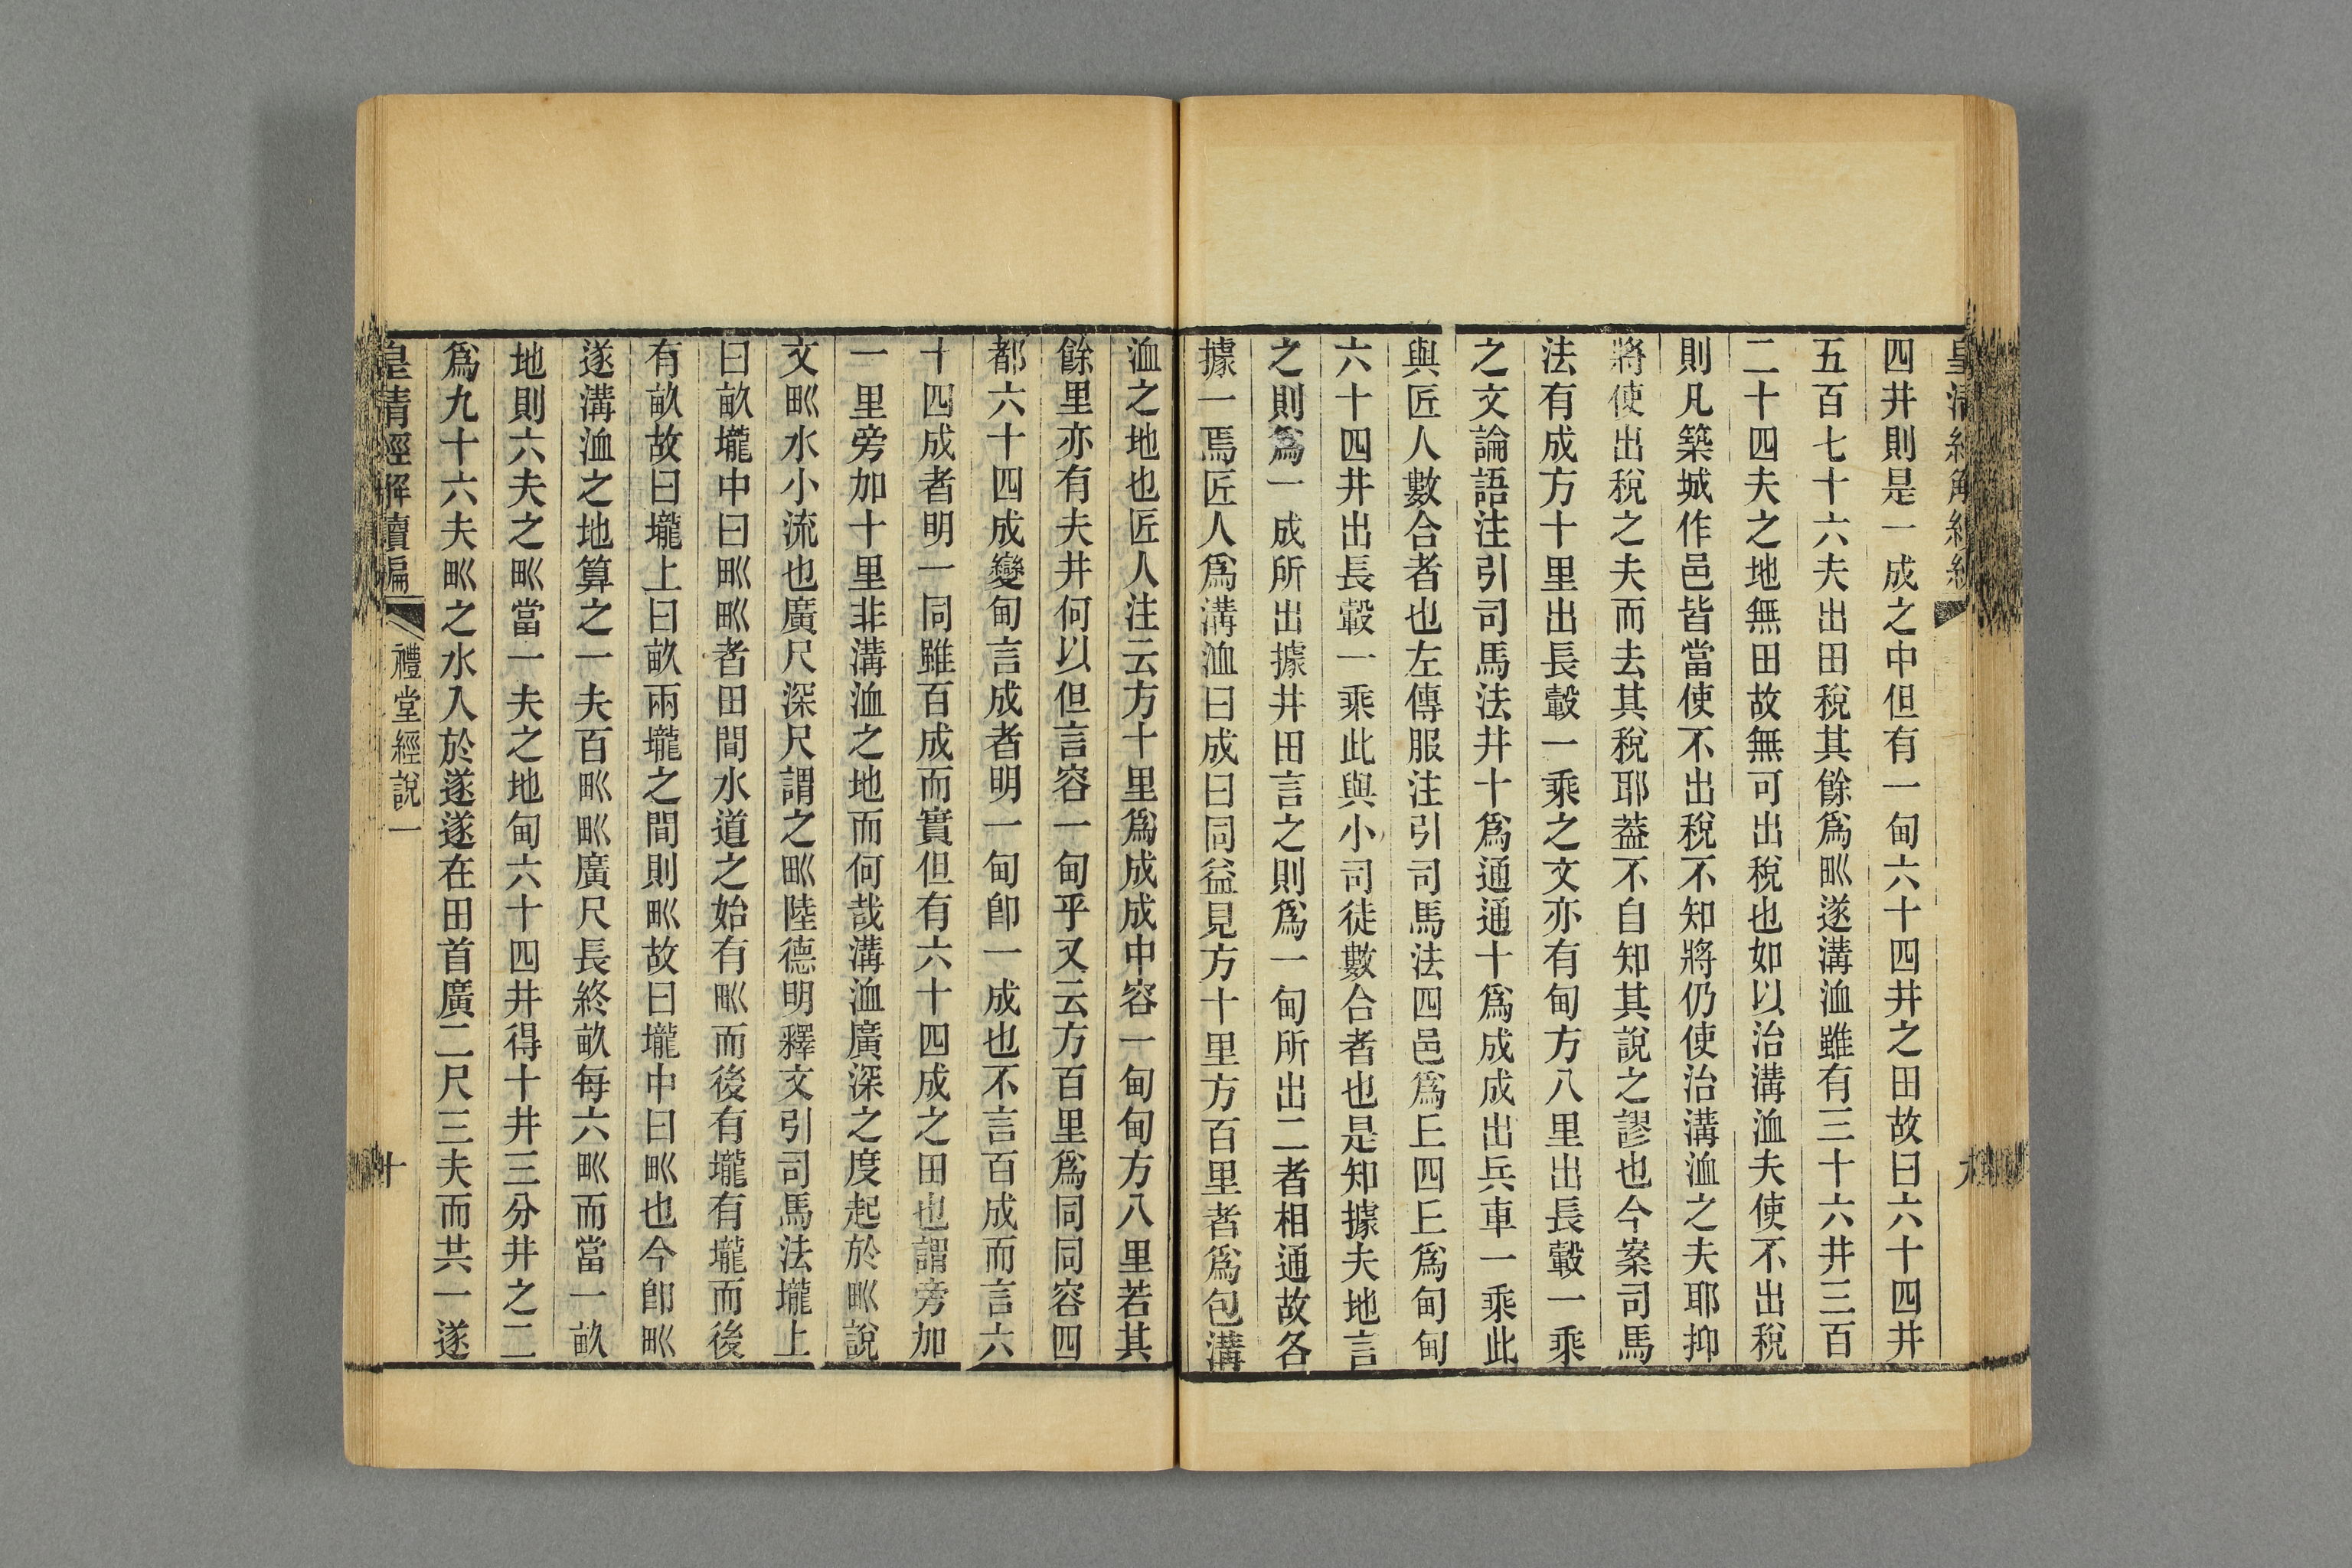 四井則是一成之中但有一甸六十四井之田故曰六十四井
五百七十六夫出田稅其餘爲𤰕遂溝洫雖有三十六井三百
二十四夫之地無田故無可出稅也如以治溝洫夫使不出稅
則凡築城作邑皆當使不出稅不知將仍使治溝洫之夫耶抑
將使出稅之夫而去其稅耶葢不自知其說之謬也今案司馬
法有成方十里出長轂一乘之文亦有甸方八里出長轂一乘
之文論語注引司馬法井十爲通通十爲成成出兵車一乘此
與匠人數合者也左傳服注引司馬法四邑爲𠀉四𠀉爲甸甸
六十四井出長轂一乘此與小司徒數合者也是知據夫地言
之則爲一成所出據井田言之則爲一甸所出二者相通故各
據一焉匠人爲溝洫曰成曰同益見方十里方百里者爲包溝
洫之地也匠人注云方十里爲成成中容一甸甸方八里若其
餘里亦有夫井何以但言容一甸乎又云方百里爲同同容四
都六十四成變甸言成者明一甸卽一成也不言百成而言六
十四成者明一同雖百成而實但有六十四成之田也謂旁加
一里旁加十里非溝洫之地而何哉溝洫廣深之度起於𤰕說
文𤰕水小流也廣尺深尺謂之𤰕陸德明釋文引司馬法壠上
曰畝壠中曰𤰕𤰕者田間水道之始有𤰕而後有壠有壠而後
有畝故曰壠上曰畝兩壠之間則𤰕故曰壠中曰𤰕也今卽𤰕
遂溝洫之地算之一夫百𤰕𤰕廣尺長終畝每六𤰕而當一畝
地則六夫之𤰕當一夫之地甸六十四井得十井三分井之二
爲九十六夫𤰕之水入於遂遂在田首廣二尺三夫而共一遂
皇清經解續編
禮堂經說一
十